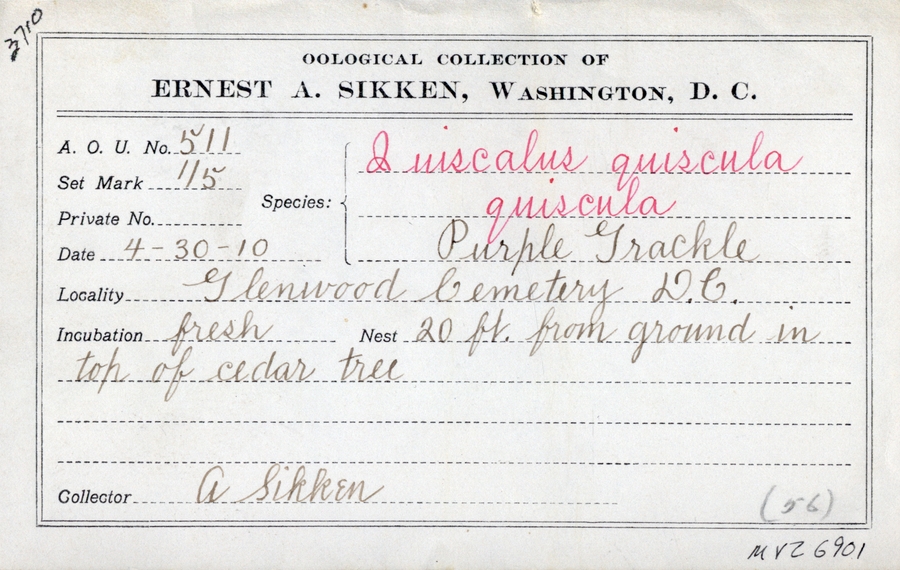 3710
OOLOGICAL COLLECTION OF
ERNEST A. SIKKEN, WASHINGTON, D. C.
A. O. U. No. 511
Set Mark 1/5
Private No.
Date 4-30-10
Species: Quiscalus quiscula
quiscula
Purple Grackle
Locality Glenwood Cemetery D.C.
Incubation fresh Nest 20 ft. from ground in
top of cedar tree
Collector A Sikken
(56)
MVZ 6901